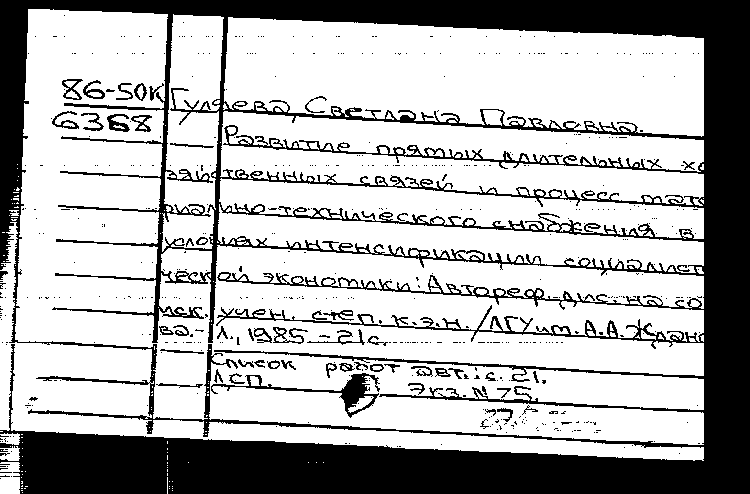 86-50К Гуляева, Светлана Павловна.
6368
Развитие прямых длительных хо
зяйственных связей и процесс мате
риально-технического снабжения в
условиях интенсификации социалист
ческой экономики: Автореф. дис. на со
иск. учен. степ. к.э.н. /ЛГУ им. А.А. Ждано
ва.- Л., 1985.-21с.
Список работ авт.: с. 21.
ДСП. Экз. N 75.